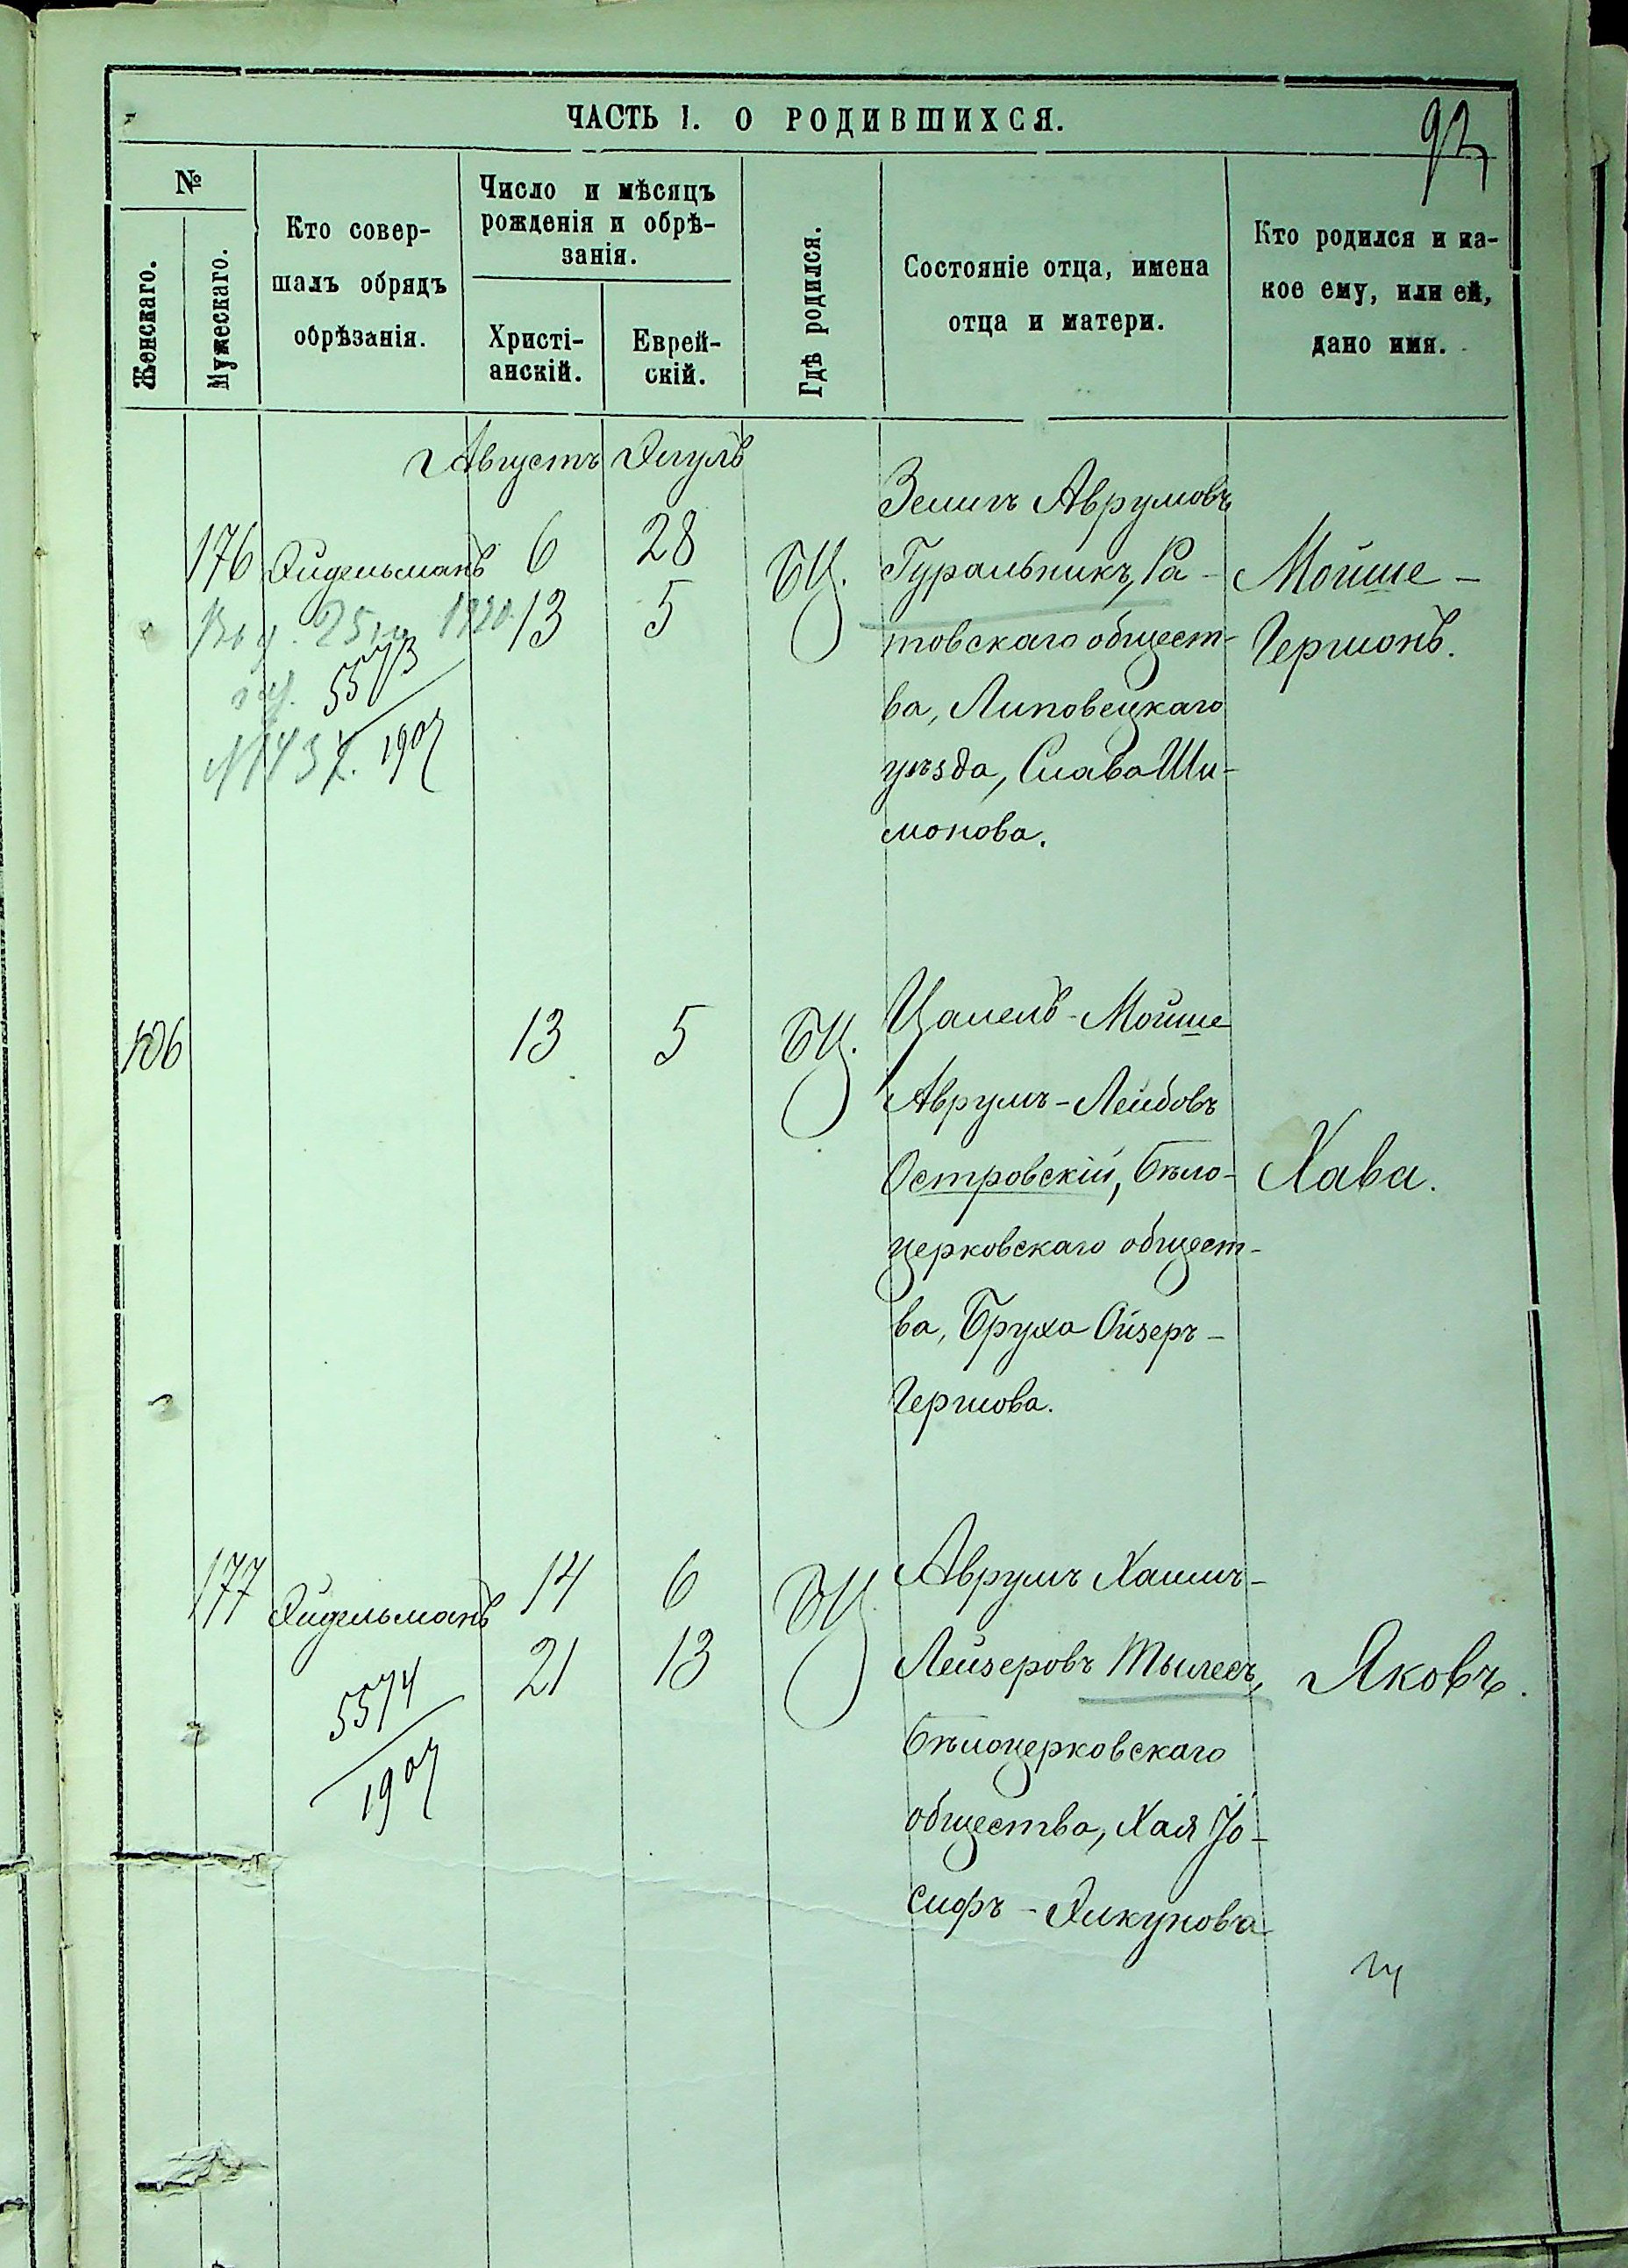 ЧАСТЬ I. О РОДИВШИХСЯ.
92
№
Женскаго.
Мужескаго.
Кто совер-
шалъ обрядъ
обрѣзанія.
Число и мѣсяцъ
рожденія и обрѣ-
занія.
Христі-
анскій.
Еврей-
скій.
Гдѣ родился.
Состояніе отца, имена
отца и матери.
Кто родился и ка-
кое ему, или ей,
дано имя.
Августъ Элулъ
176 Эйдельманъ 6 28 БЦ.
13 5
1920
5573
1907
Зелигъ Аврумовъ
Гуральникъ, Ра-
товскаго общест-
ва, Липовецкаго
уѣзда, Слава Ши-
монова.
Мойше-
Гершонъ.
106 13 5 БЦ.
Цалель-Мойше
Аврумъ-Лейбовъ
Островскій, Бѣло-
церковскаго общест-
ва, Бруха Ойзеръ-
Гершова.
Хава.
177 Эйдельманъ 14 6 БЦ
21 13
5574
1907
Аврумъ Хаимъ-
Лейзеровъ Тылесъ,
Бѣлоцерковскаго
общества, Хая Іо-
сифъ-Элкунова
Яковъ.